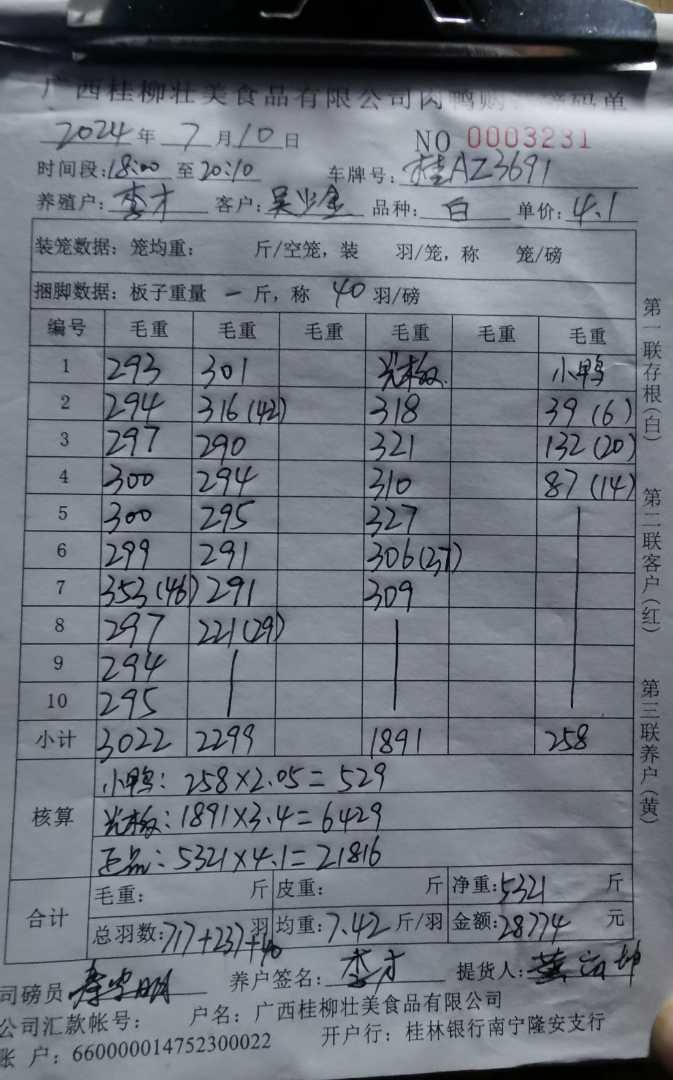 广西桂柳壮美食品有限公司肉鸭购 磅码单
2024年 7月10日 NO 0003231
时间段:18:00 至20:10 车牌号: 桂AZ3691
养殖户: 李才 客户: 吴少金 品种: 白 单价: 4.1
装笼数据: 笼均重: 斤/空笼, 装 羽/笼, 称 笼/磅
捆脚数据: 板子重量 一 斤, 称 40 羽/磅
编号 毛重 毛重 毛重 毛重 毛重 毛重
1 293 301 光板 小鸭
2 294 316(42) 318 39(6)
3 297 290 321 132(20)
4 300 294 310 87(14)
5 300 295 327
6 299 291 306(37)
7 353(46) 291 309
8 297 221(29)
9 294
10 295
小计 3022 2299 1891 258
核算 小鸭: 258×2.05=529
光板: 1891×3.4=6429
正品: 5321×4.1=21816
合计 毛重: 斤 皮重: 斤 净重: 5321 斤
总羽数: 717+237+40 羽 均重: 7.42 斤/羽 金额: 28774 元
司磅员 养户签名: 李才 提货人:
公司汇款帐号: 户名: 广西桂柳壮美食品有限公司
账 户: 660000014752300022 开户行: 桂林银行南宁隆安支行
第一联存根(白)
第二联客户(红)
第三联养户(黄)